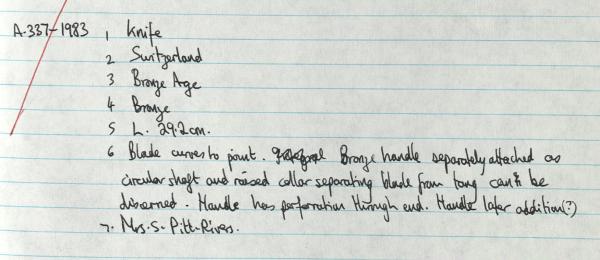 A.337-1983 1 Knife
2 Switzerland
3 Bronze Age
4 Bronze
5 L. 29.2cm.
6 Blade curves to point. Bronze handle separately attached as
circular shaft and raised collar separating blade from tang can't be
discerned. Handle has perforation through end. Handle later addition(?)
7. Mrs. S. Pitt-Rivers.